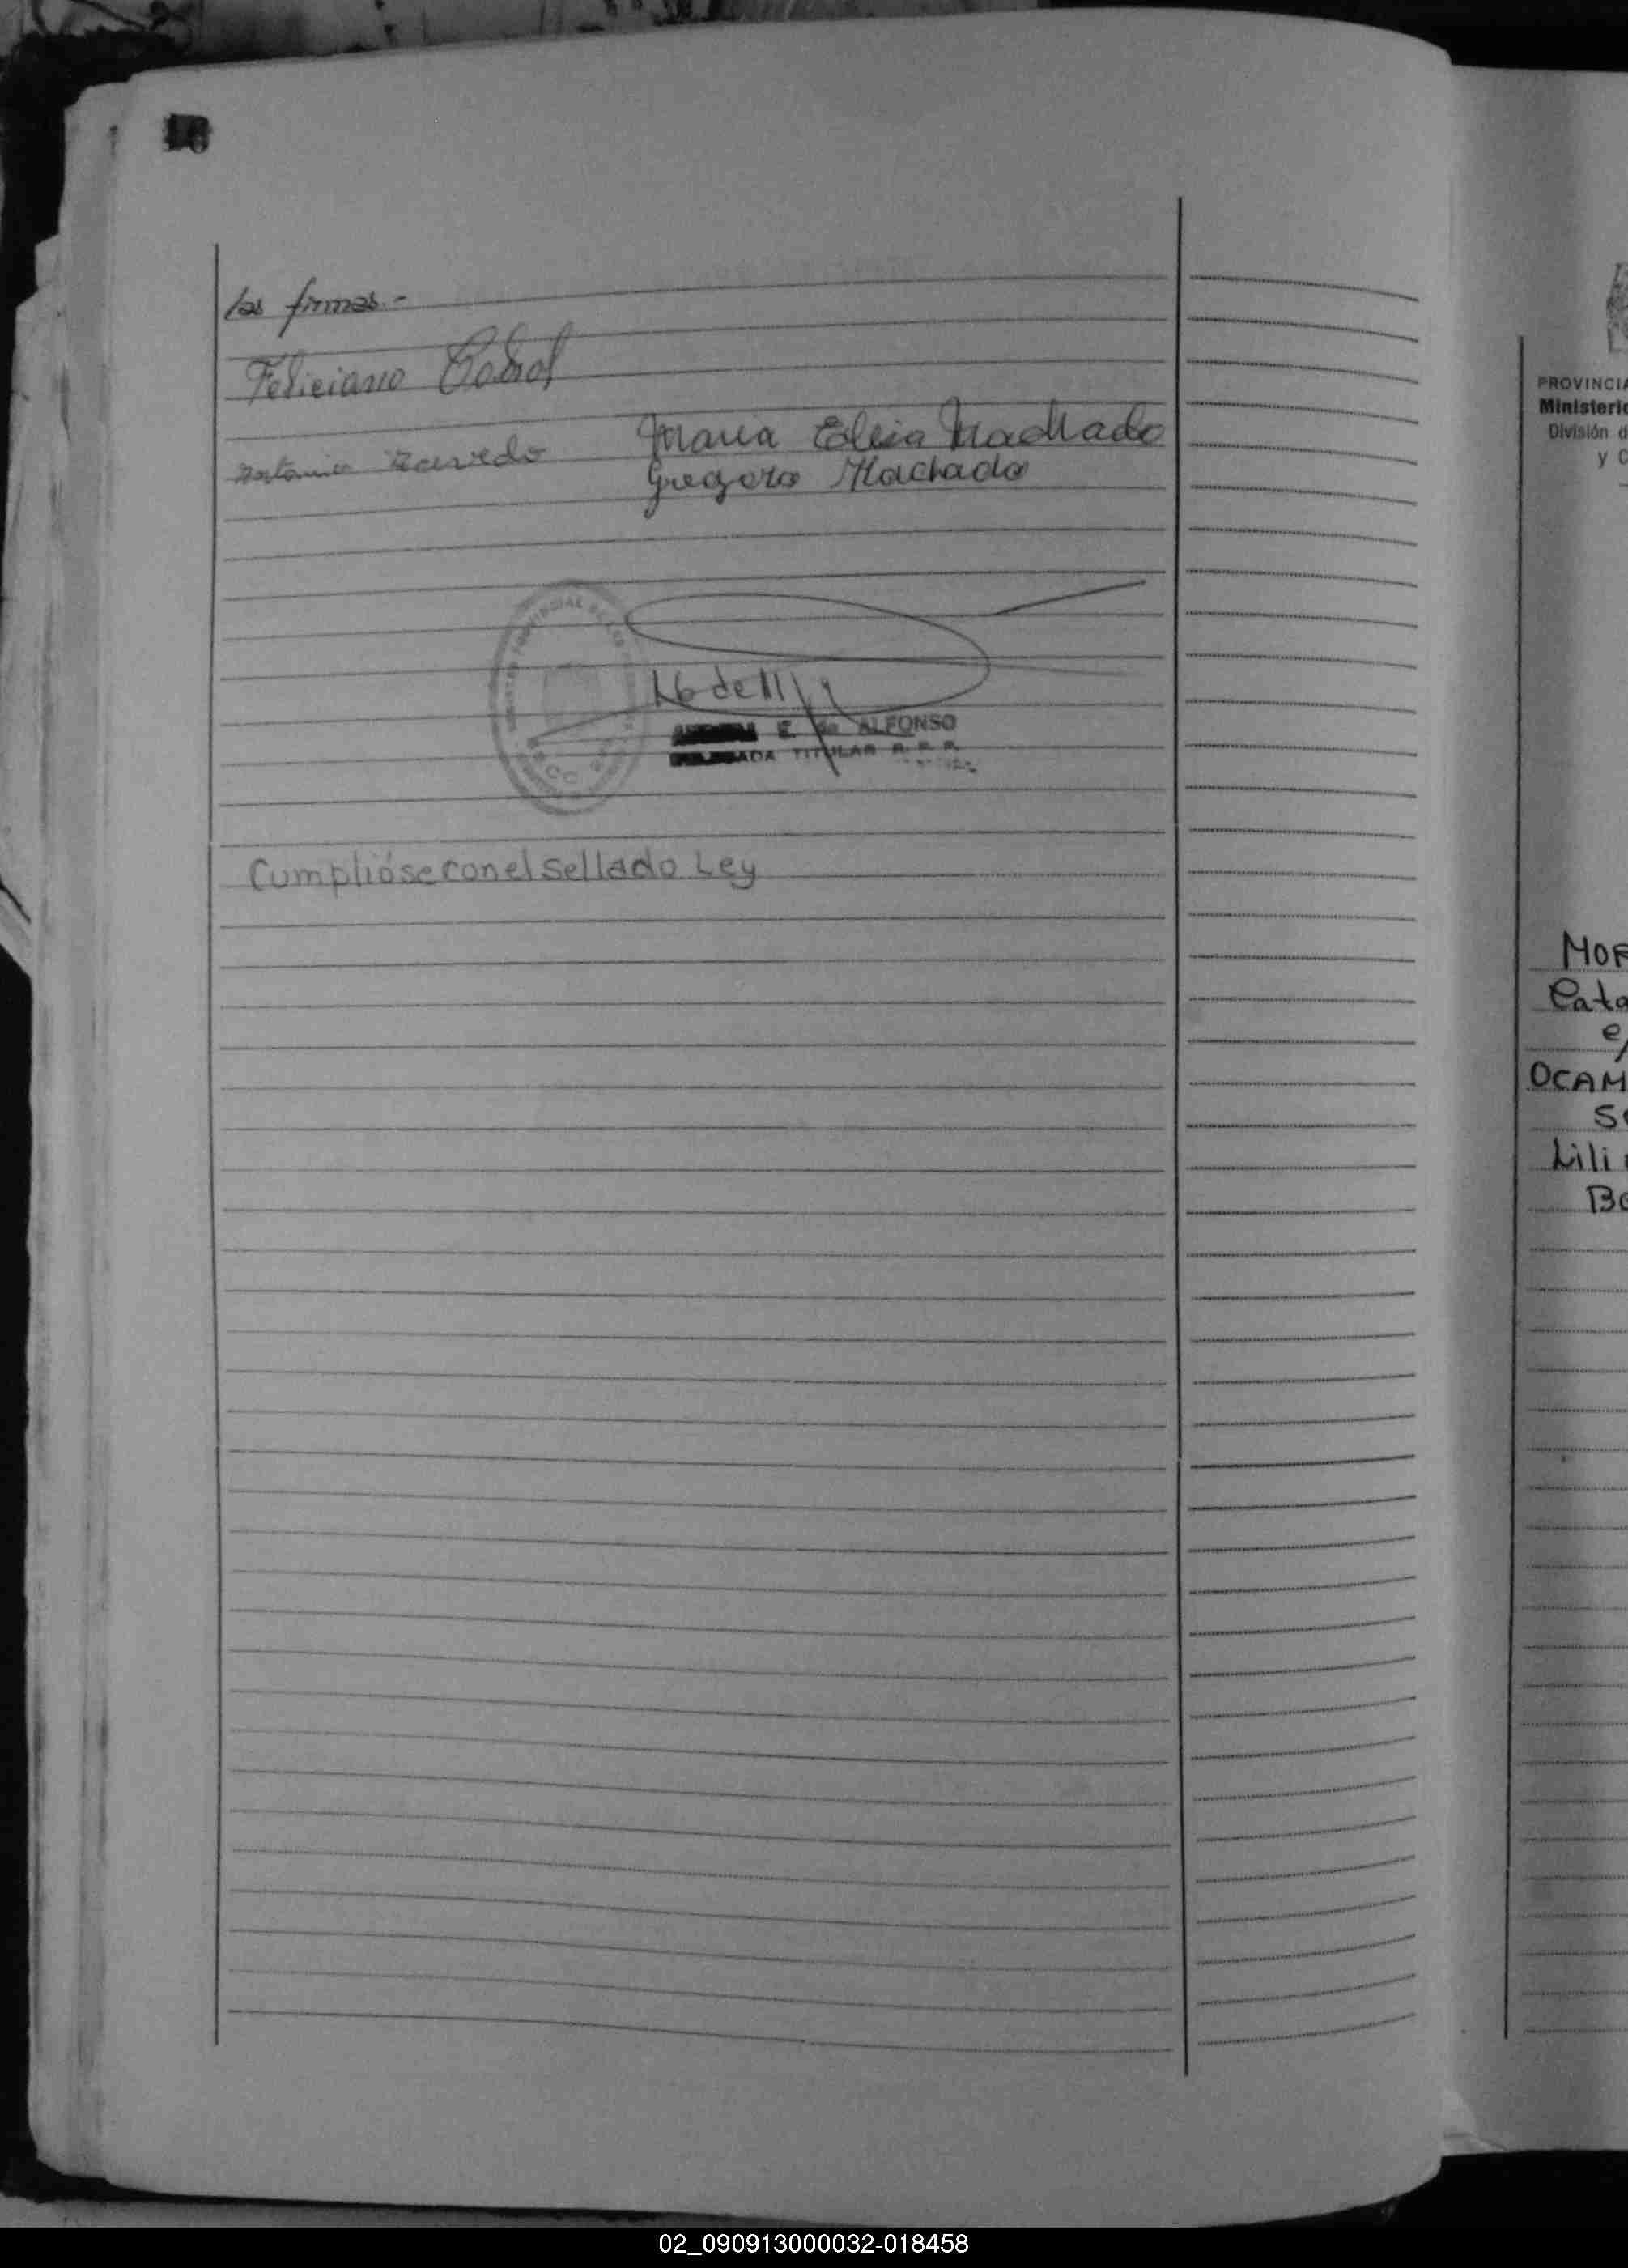 16
las firmas.-
Feliciano Cabral
Antonia Acevedo
Maria Elia Machado
Gregorio Machado
E. de ALFONSO
TITULAR R. P. P.
SECC
Cumplióse con el sellado Ley
PROVINCIA
Ministerio
División d
y C
MOR
Cata
e/
OCAM
Se
Lili
Bo
02_090913000032-018458